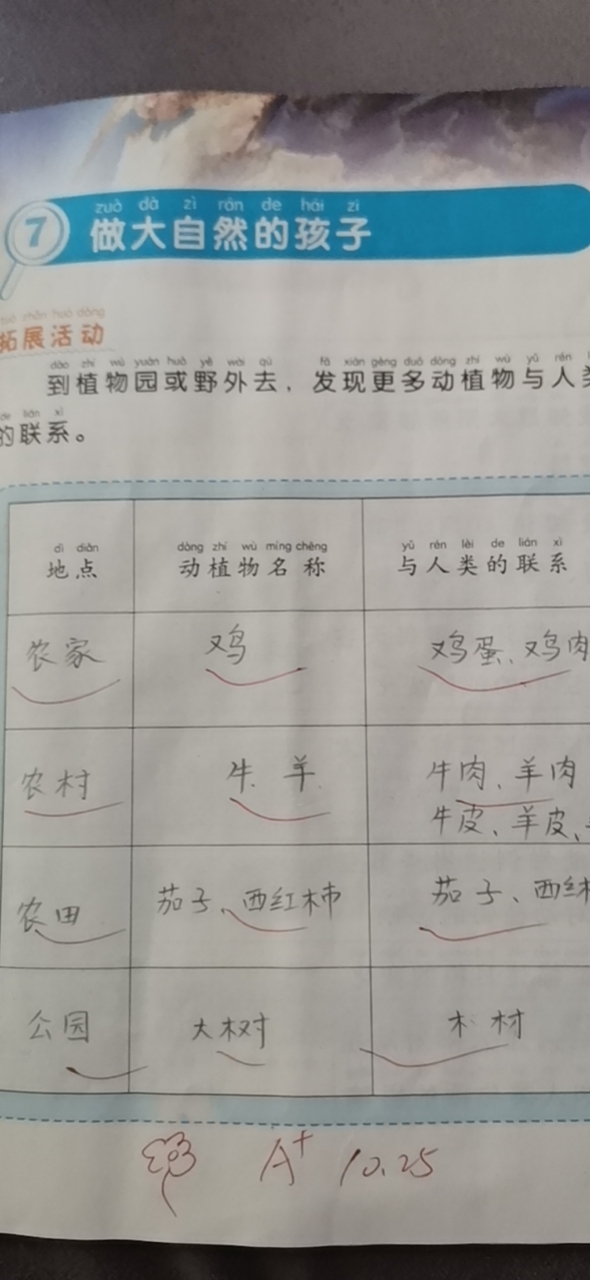 zuò dà zì rán de hái zi
7 做大自然的孩子
拓展活动
dào zhí wù yuán huò yě wài qù fā xiàn gèng duō dòng zhí wù yǔ rén
到植物园或野外去，发现更多动植物与人类
de lián xì
的联系。
dì diǎn dòng zhí wù míng chēng yǔ rén lèi de lián xì
地点 动植物名称 与人类的联系
农家 鸡 鸡蛋、鸡肉
农村 牛、羊 牛肉、羊肉
牛皮、羊皮、
农田 茄子、西红柿 茄子、西红
公园 大树 木材
A+ 10.25